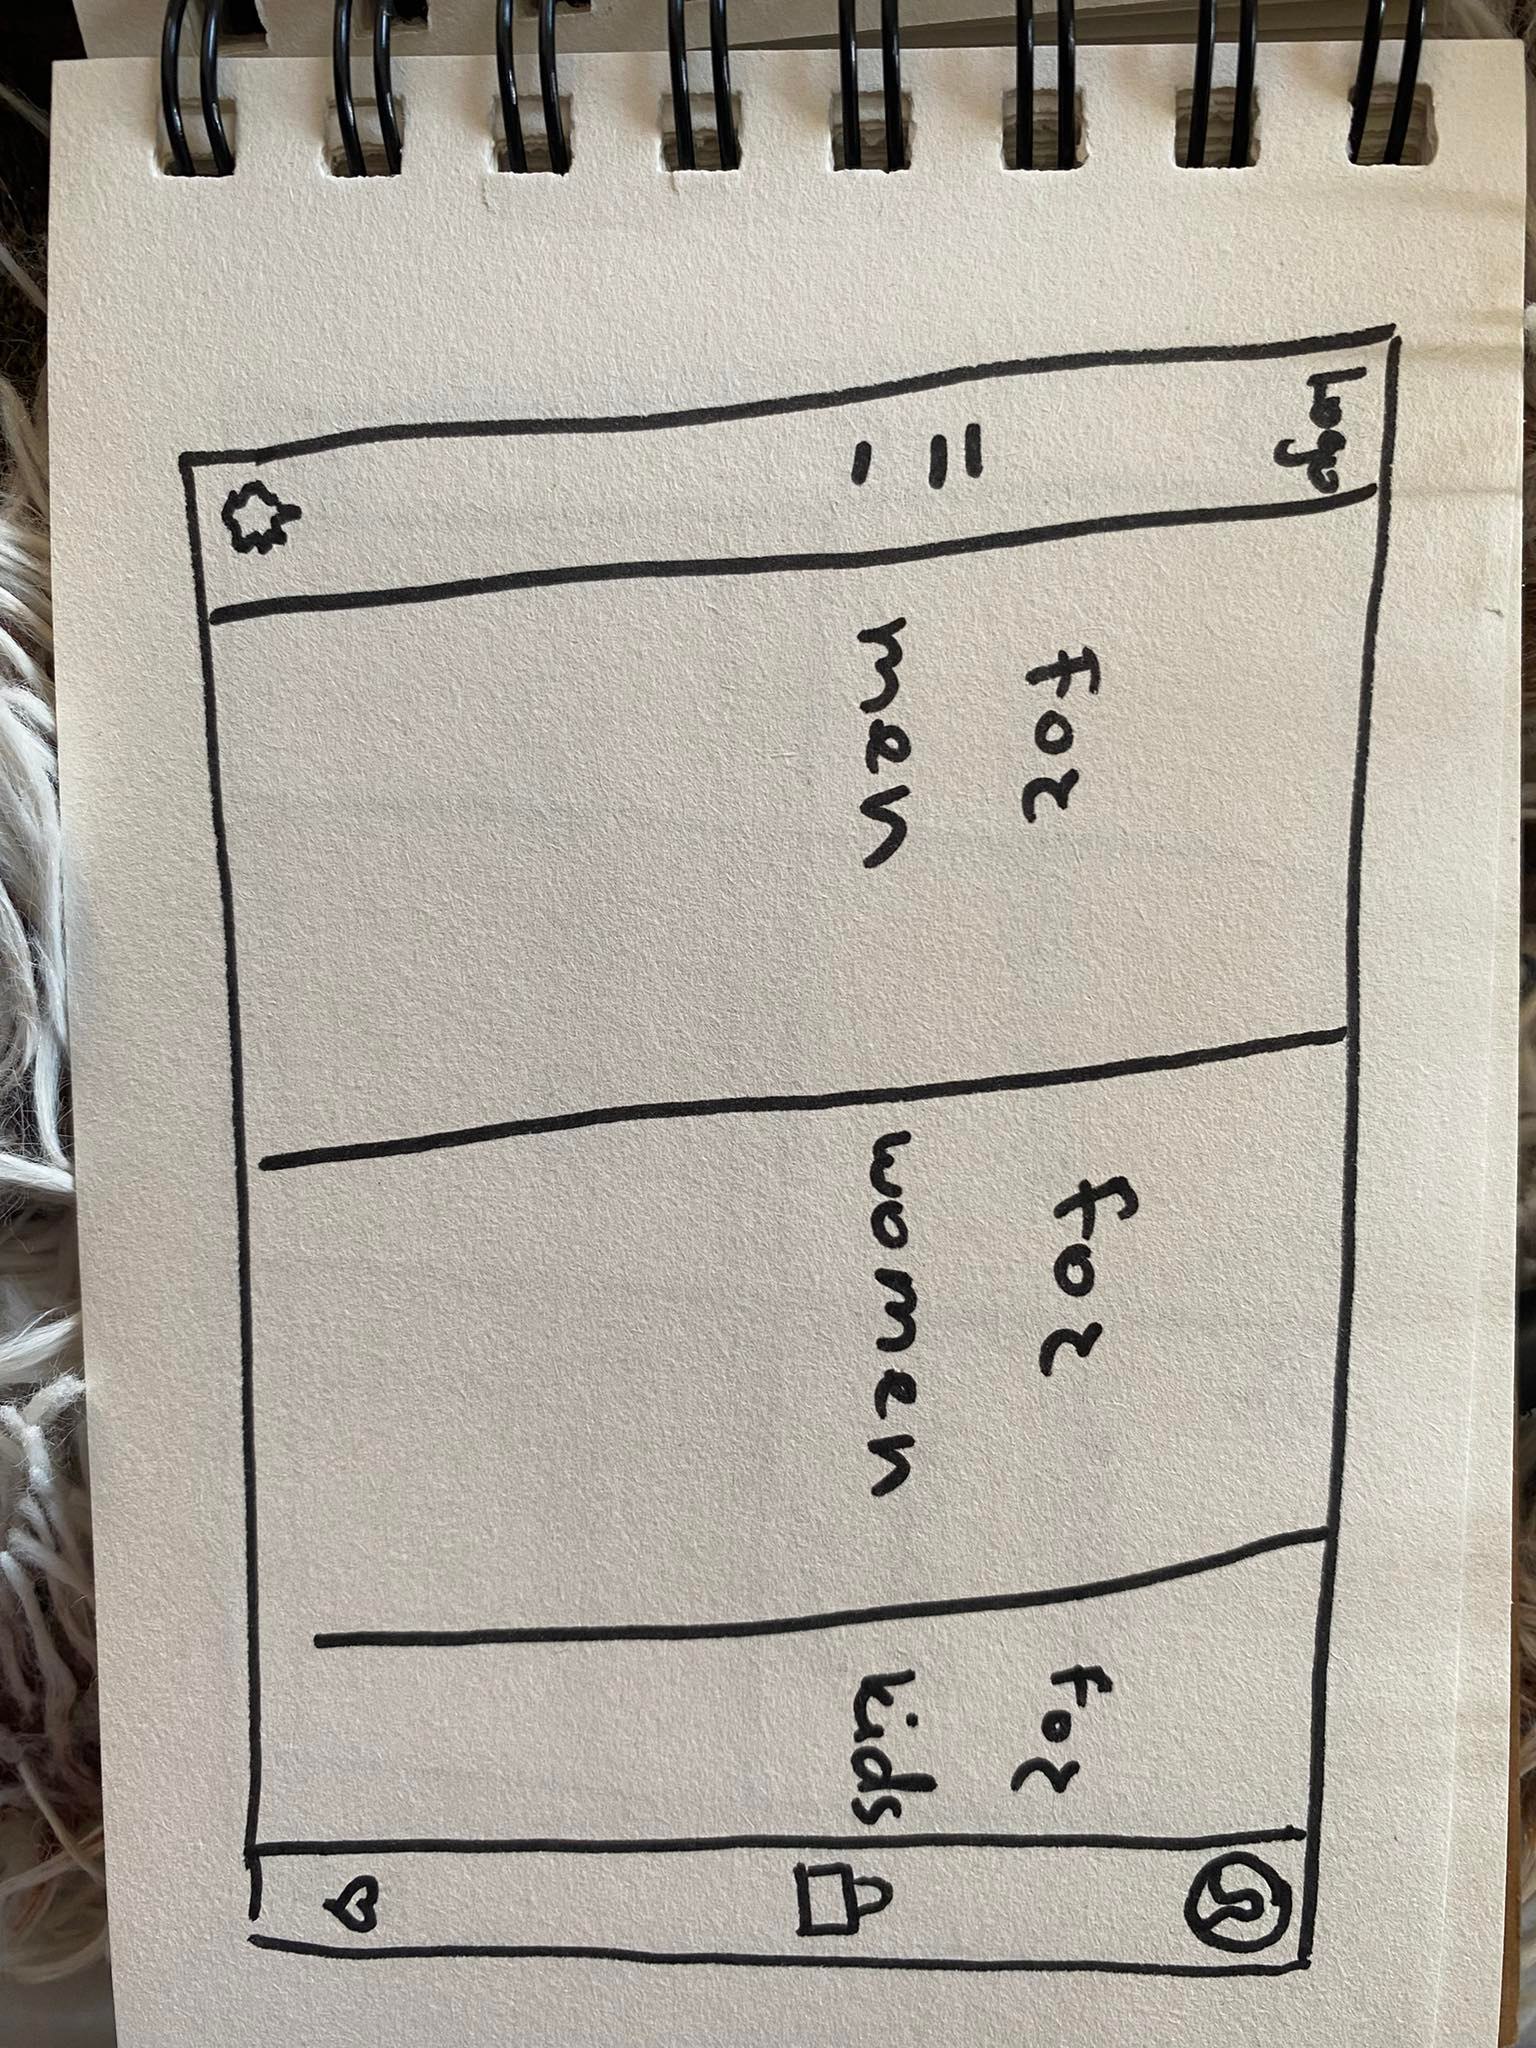 Logo
For
men
For
women
For
kids